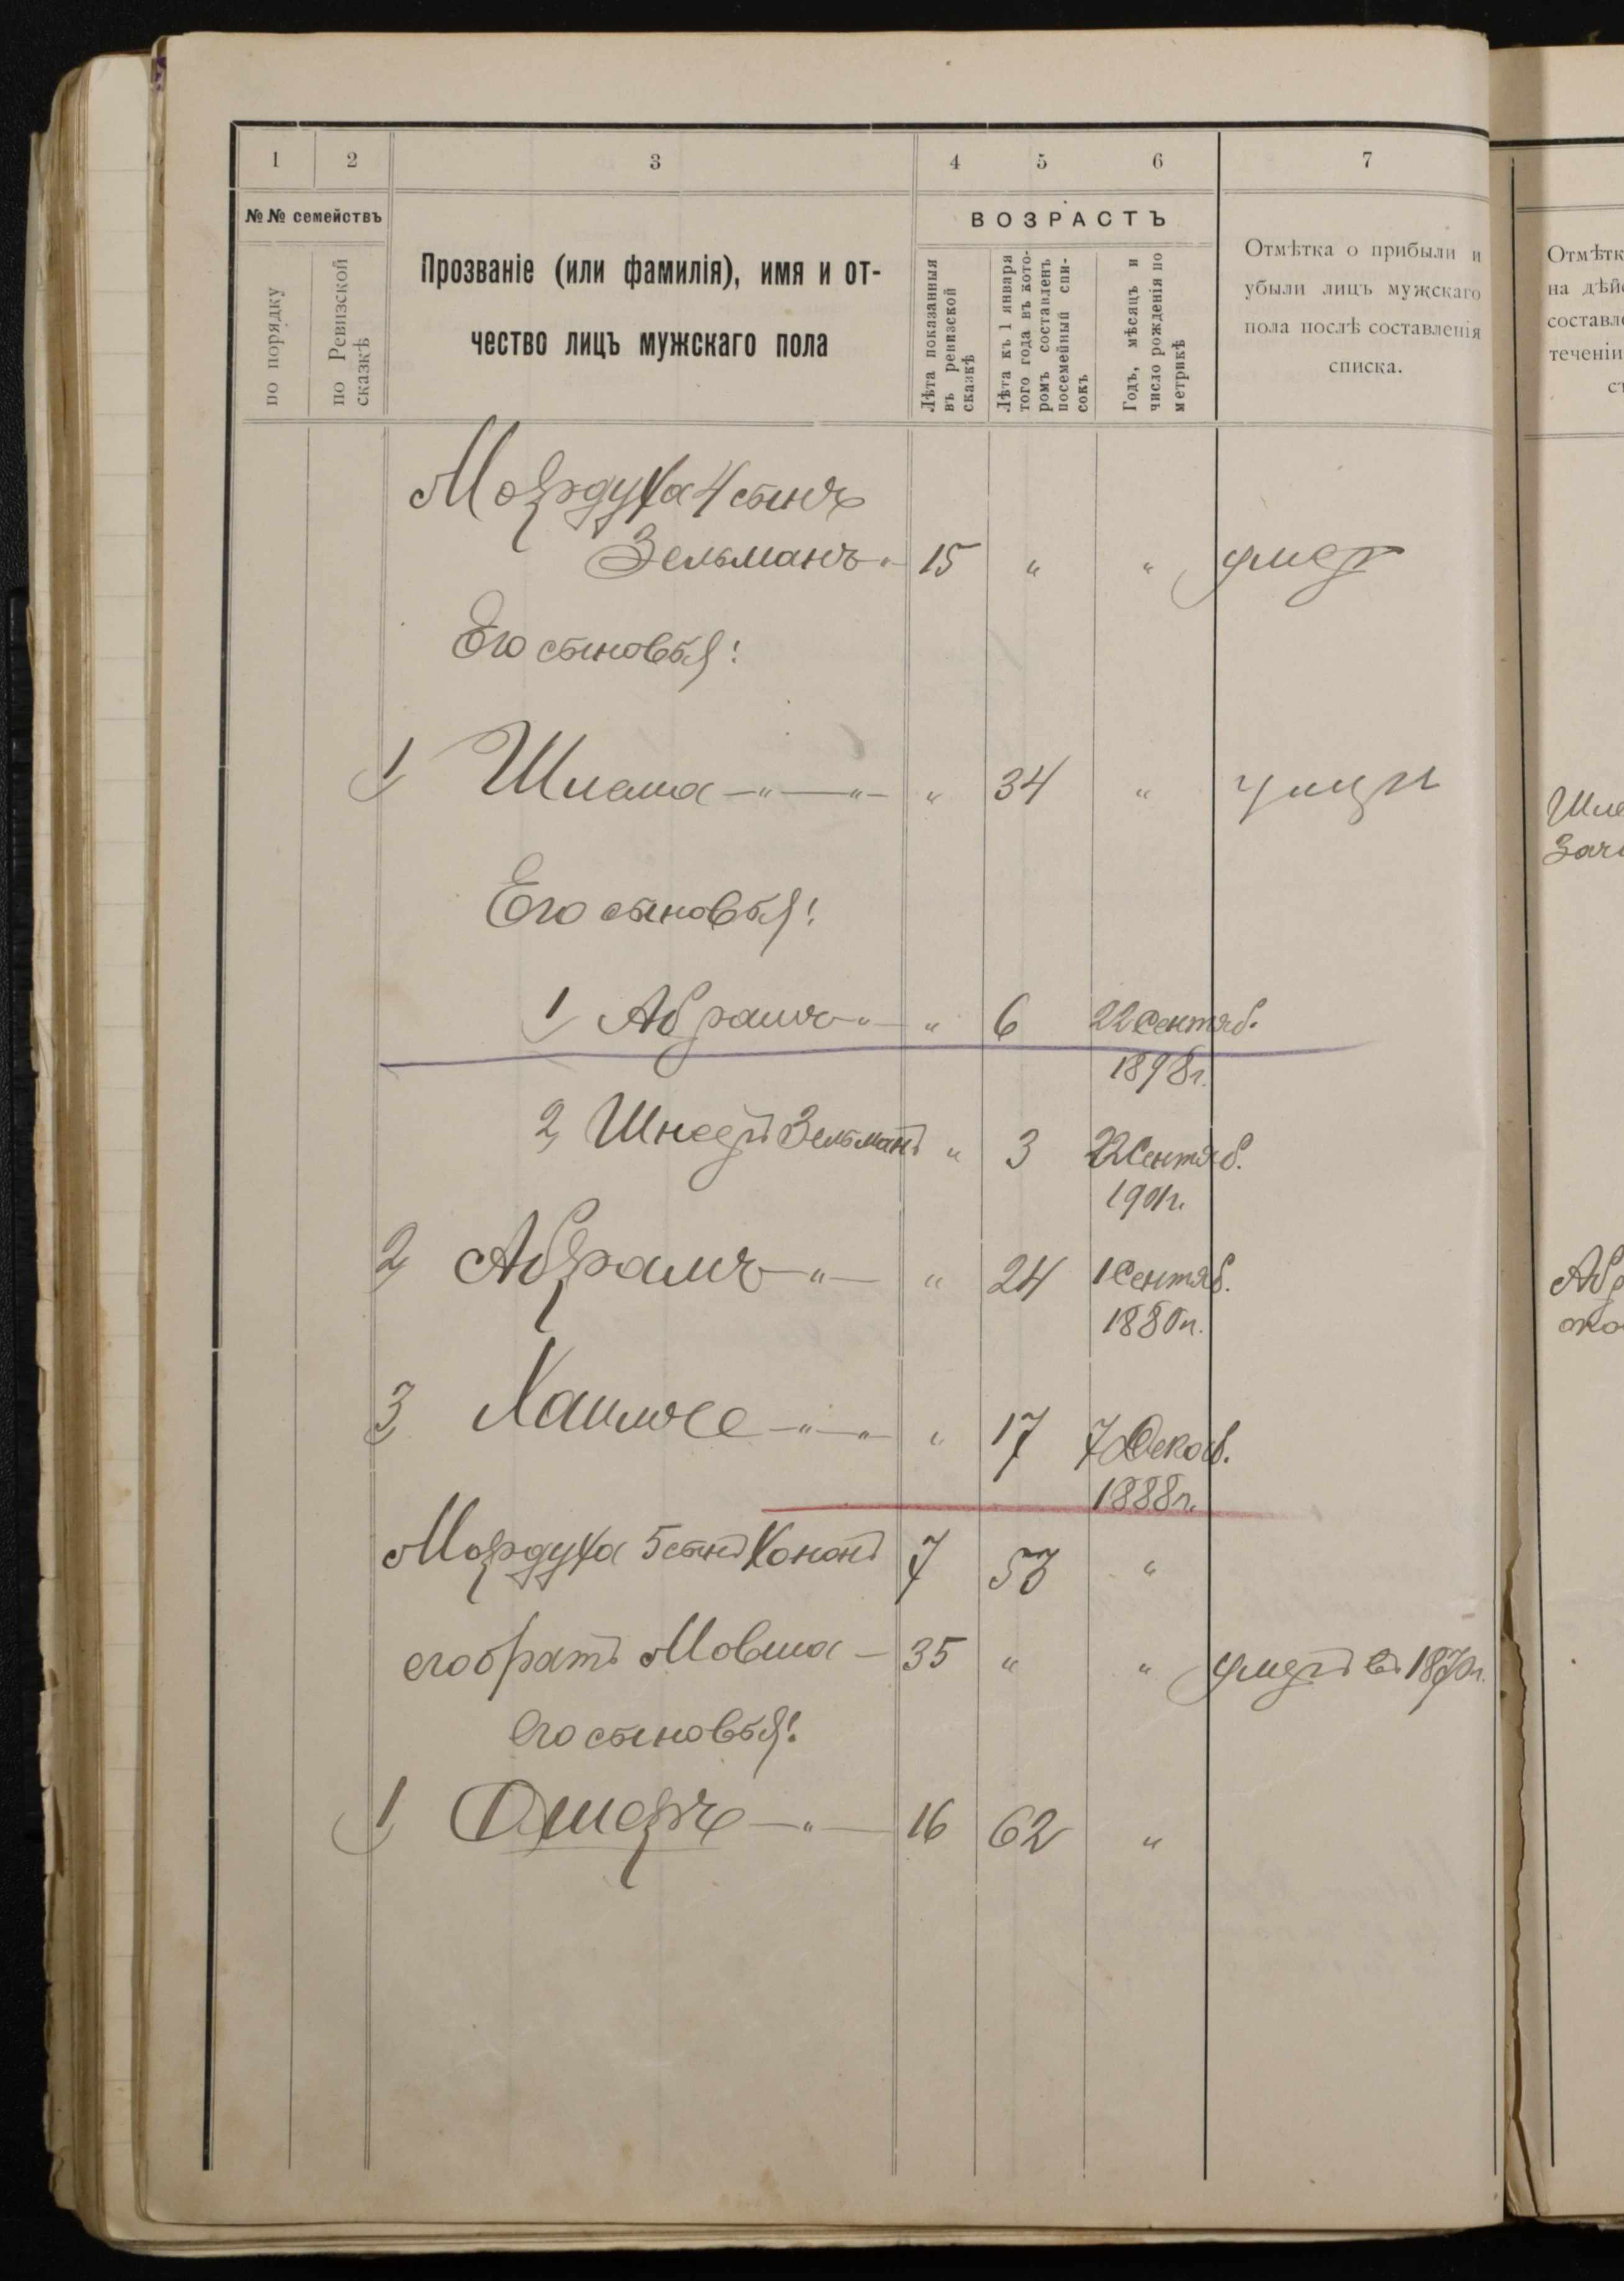 1 2 3 4 5 6 7
№ № семействъ
по порядку
по Ревизской сказкѣ
Прозваніе (или фамилія), имя и от-
чество лицъ мужскаго пола
ВОЗРАСТЪ
Лѣта показанныя
въ ревизской
сказкѣ
Лѣта къ 1 января
того года въ кото-
ромъ составленъ
посемейный спи-
сокъ
Годъ, мѣсяцъ и
число рожденія по
метрикѣ
Отмѣтка о прибыли и
убыли лицъ мужскаго
пола послѣ составленія
списка.
Мордуха 4 сынъ
Зельманъ " 15 " " умер
Его сыновья:
1 Шлема " " " 34 "
Его сыновья:
1 Абрамъ " " 6 22 Сентяб.
1898 г.
2, Шнеер Зельманъ " 3 22 Сентяб.
1901 г.
2, Абрамъ " " 24 1 Сентяб.
1880 г.
3, " " " 17 7 Декаб.
1888 г.
Мордуха 5 сынъ Хонон 7 53 "
его братъ Мовша 35 " " умеръ въ 1870 г.
его сыновья:
1 Ошеръ " 16 62 "
Отмѣтк
на дѣй
составл
теченіи
ст
Шле
Зач
Абр
око